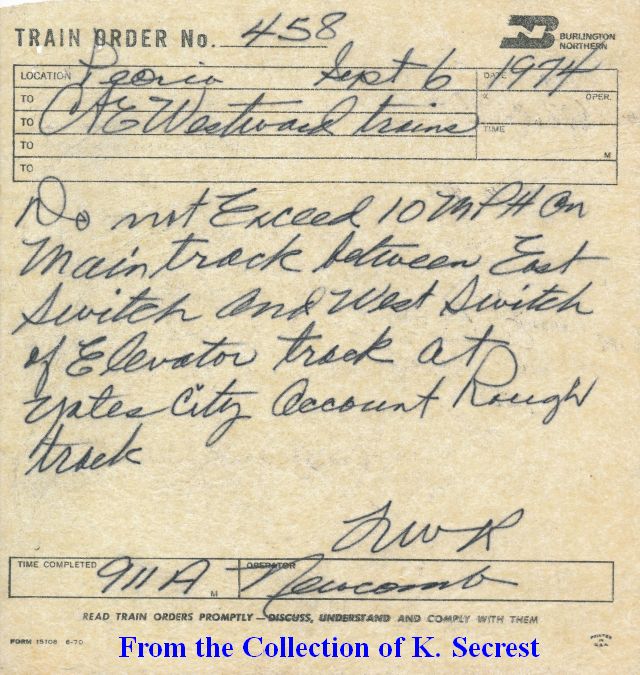 TRAIN ORDER No. 458
BURLINGTON
NORTHERN
LOCATION Peoria Sept 6 DATE 1974
TO C&E Westward trains X OPER.
TO TIME
TO M
TO
Do not Exceed 10 MPH On
Main track between East
Switch and West Switch
of Elevator track at
Yates City Account Rough
track
TIME COMPLETED 911 A M OPERATOR Newcomb
READ TRAIN ORDERS PROMPTLY—DISCUSS, UNDERSTAND AND COMPLY WITH THEM
FORM 15108 6-70
PRINTED
IN
U.S.A.
From the Collection of K. Secrest